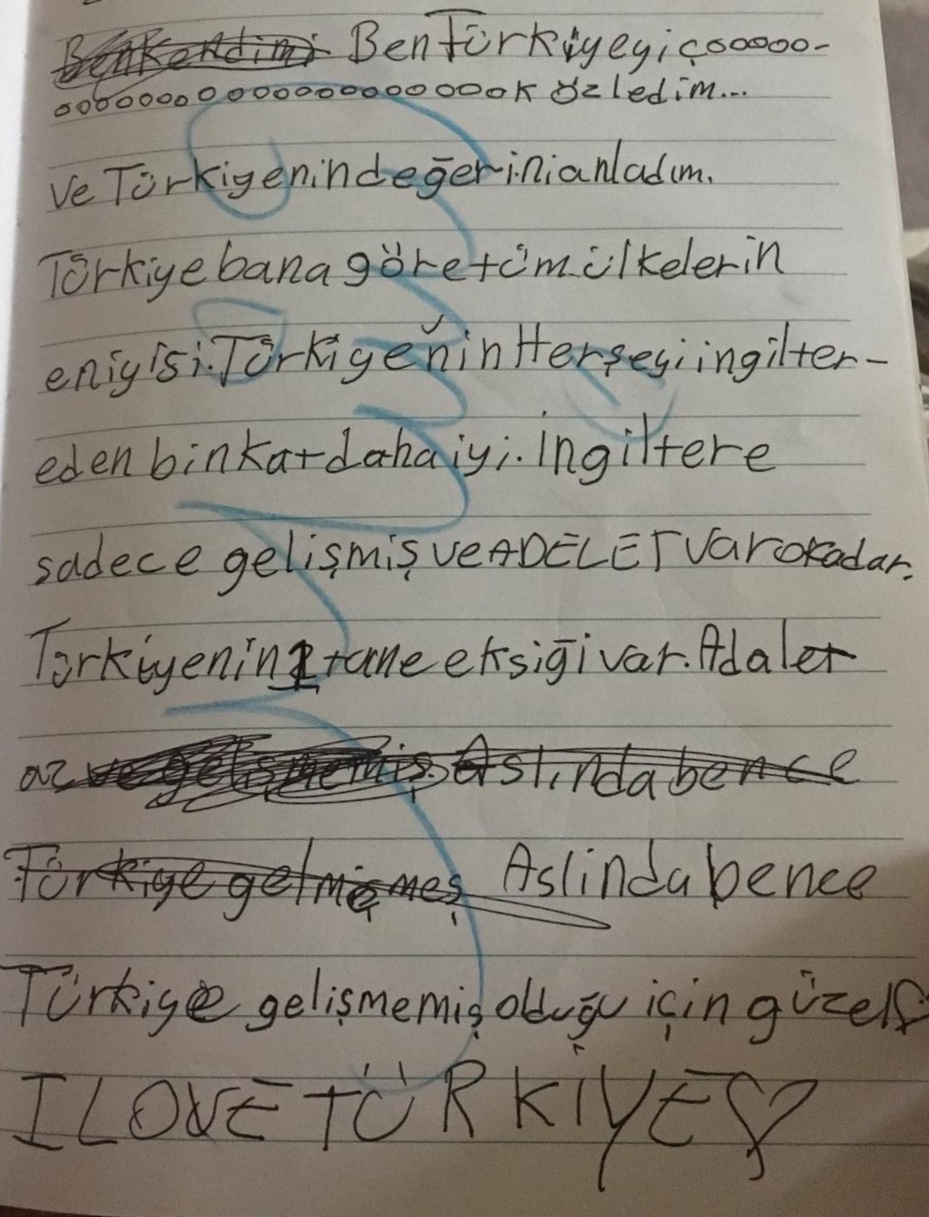 Ben Kendimi Ben Türkiyeyi çooooo-
ooooooooooooooooooook özledim...
ve Türkiyenin değerini anladım.
Türkiye bana göre tüm ülkelerin
en iyisi. Türkiyenin Herşeyi ingilter-
eden bin kat daha iyi. İngiltere
sadece gelişmiş ve ADELET var o kadar.
Türkiyenin 1 tane eksiği var. Adalet
az ve gelişmemiş. Aslında bence
Türkiye gelmişmeş Aslinda bence
Türkiye gelişmemiş olduğu için güzel♡
I LOVE TÜRKİYE♡